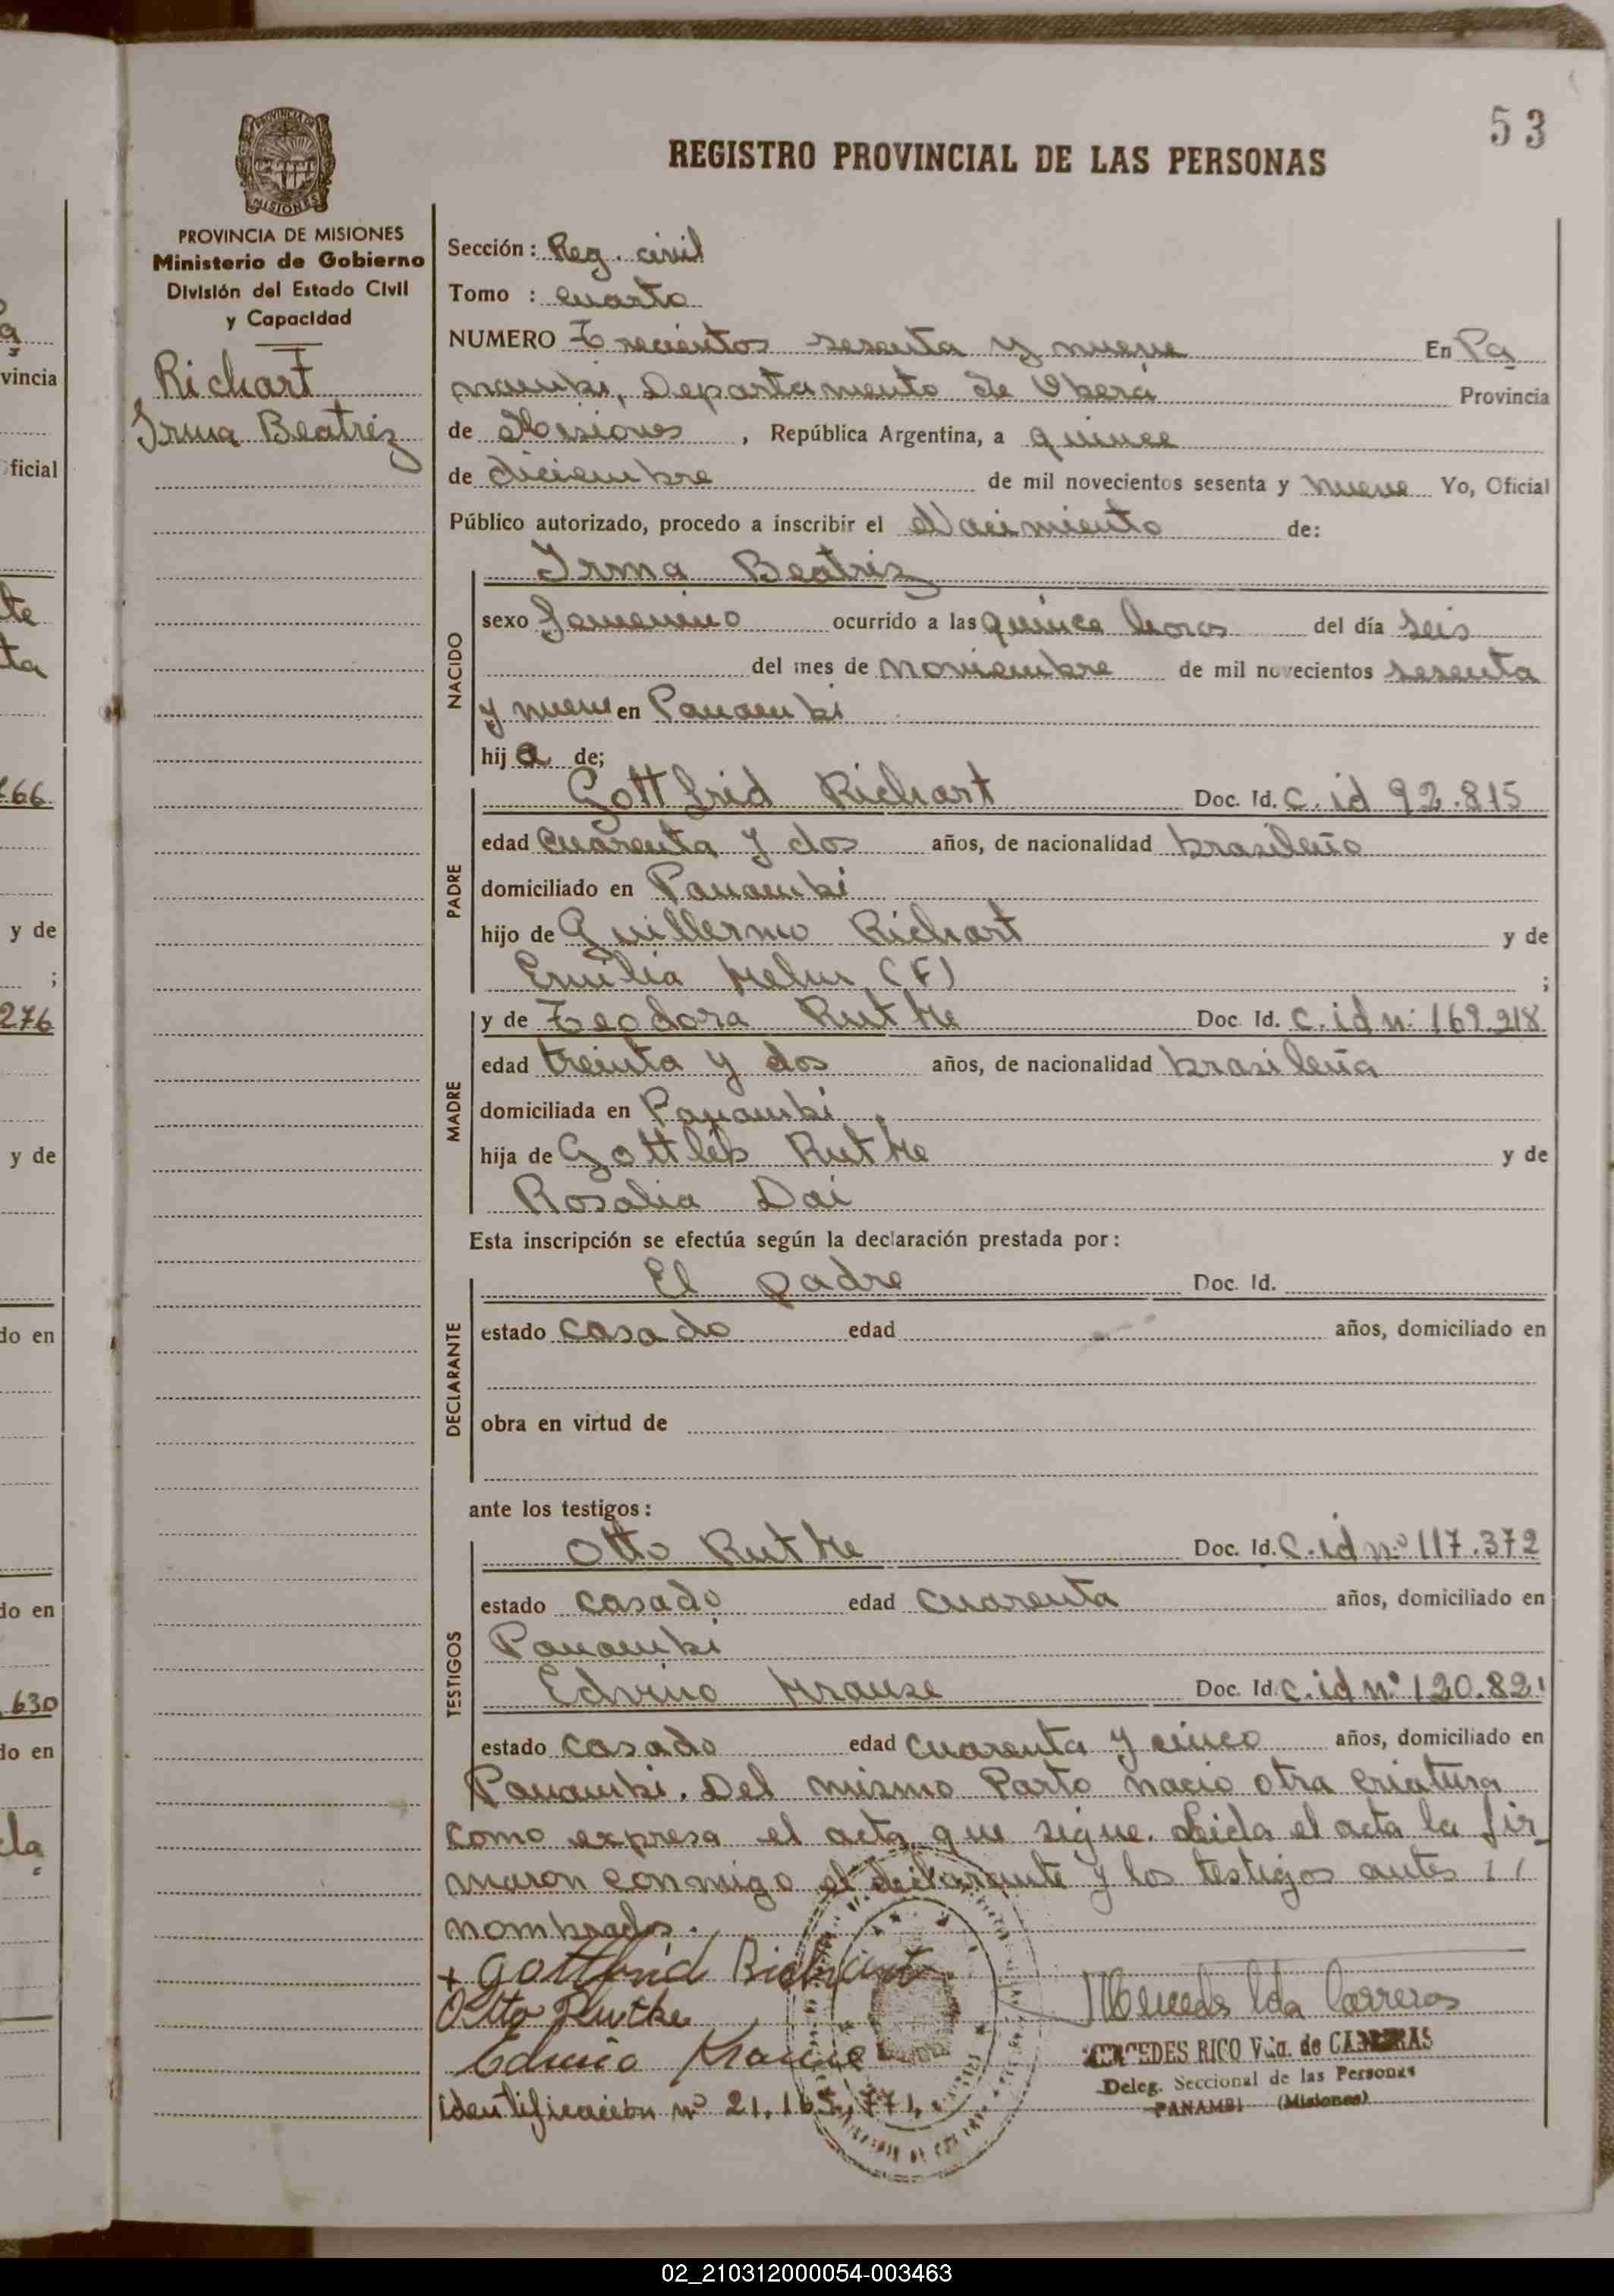 53
REGISTRO PROVINCIAL DE LAS PERSONAS
PROVINCIA DE MISIONES
Ministerio de Gobierno
División del Estado Civil
y Capacidad
Richart
Irma Beatriz
Sección: Reg. civil
Tomo : cuarto
NUMERO Trecientos sesenta y nueve En Pa
nambi, Departamento de Oberá Provincia
de Misiones, República Argentina, a quince
de diciembre de mil novecientos sesenta y nueve Yo, Oficial
Público autorizado, procedo a inscribir el Nacimiento de:
NACIDO
Irma Beatriz
sexo femenino ocurrido a las quince horas del día seis
del mes de noviembre de mil novecientos sesenta
y nueve en Panambi
hija de;
PADRE
Gottfrid Richart Doc. Id. c. id 92.815
edad cuarenta y dos años, de nacionalidad brasileño
domiciliado en Panambi
hijo de Guillermo Richart y de
Emilia (F) ;
MADRE
y de Teodora Rutke Doc. Id. c. id n: 169.918
edad treinta y dos años, de nacionalidad brasileña
domiciliada en Panambi
hija de Gottlib Rutke y de
Rosalia Dai
Esta inscripción se efectúa según la declaración prestada por:
DECLARANTE
El padre Doc. Id.
estado casado edad años, domiciliado en
obra en virtud de
ante los testigos:
TESTIGOS
Otto Rutke Doc. Id. C. id n.º 117.372
estado casado edad cuarenta años, domiciliado en
Panambi
Edvino Krause Doc. Id. c. id n.º 120.821
estado casado edad cuarenta y cinco años, domiciliado en
Panambi. Del mismo Parto nacio otra criatura
como expresa el acta que sigue. Leida el acta la fir_
maron conmigo el declarante y los testigos antes //
nombrados.
+ Gottfrid Richart
Otto Rutke
Edvino Krause
identificación nº 21.165.771.
Mercedes Vda Carreras
MERCEDES RICO Vda. de CARRERAS
Deleg. Seccional de las Personas
PANAMBI (Misiones)
vincia
ficial
66
y de
;
276
y de
do en
do en
630
do en
02_210312000054-003463